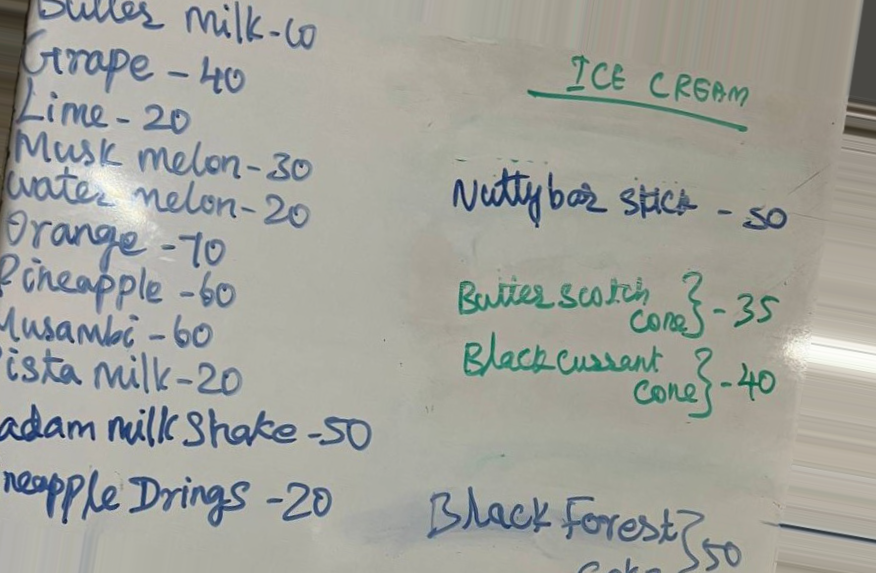 Butter Milk-60
Grape - 40
Lime - 20
Musk melon - 30
water melon - 20
Orange - 70
Pineapple - 60
Musambi - 60
ista Milk - 20
adam milk Shake - 50
neapple Drings - 20
ICE CREAM
Nuttybar stick - 50
Butterscotch
cone} - 35
Blackcurrant
cone} - 40
Black Forest} 50